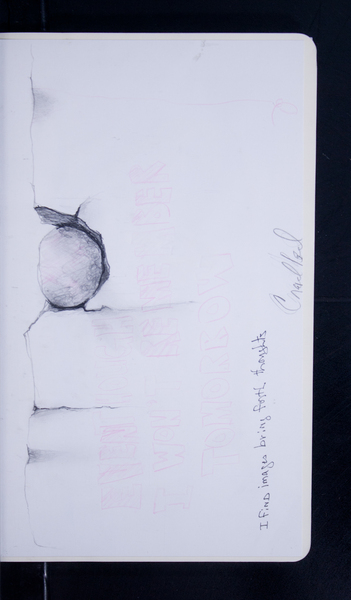 Cradled
I find images bring forth thoughts
EVEN
I WON'T REMEMBER
TOMORROW